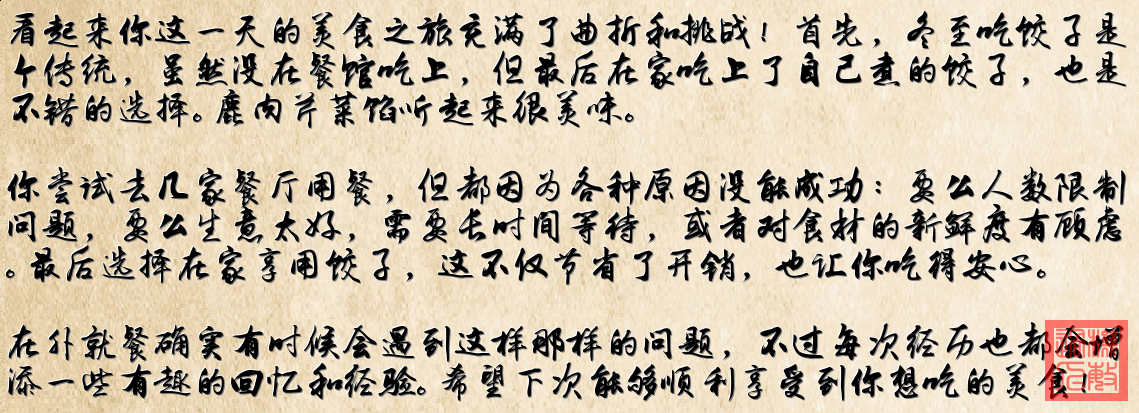 看起来你这一天的美食之旅充满了曲折和挑战！首先，冬至吃饺子是
个传统，虽然没在餐馆吃上，但最后在家吃上了自己煮的饺子，也是
不错的选择。鹿肉芹菜馅听起来很美味。
你尝试去几家餐厅用餐，但都因为各种原因没能成功：要么人数限制
问题，要么生意太好，需要长时间等待，或者对食材的新鲜度有顾虑
。最后选择在家享用饺子，这不仅节省了开销，也让你吃得安心。
在外就餐确实有时候会遇到这样那样的问题，不过每次经历也都会增
添一些有趣的回忆和经验。希望下次能够顺利享受到你想吃的美食！